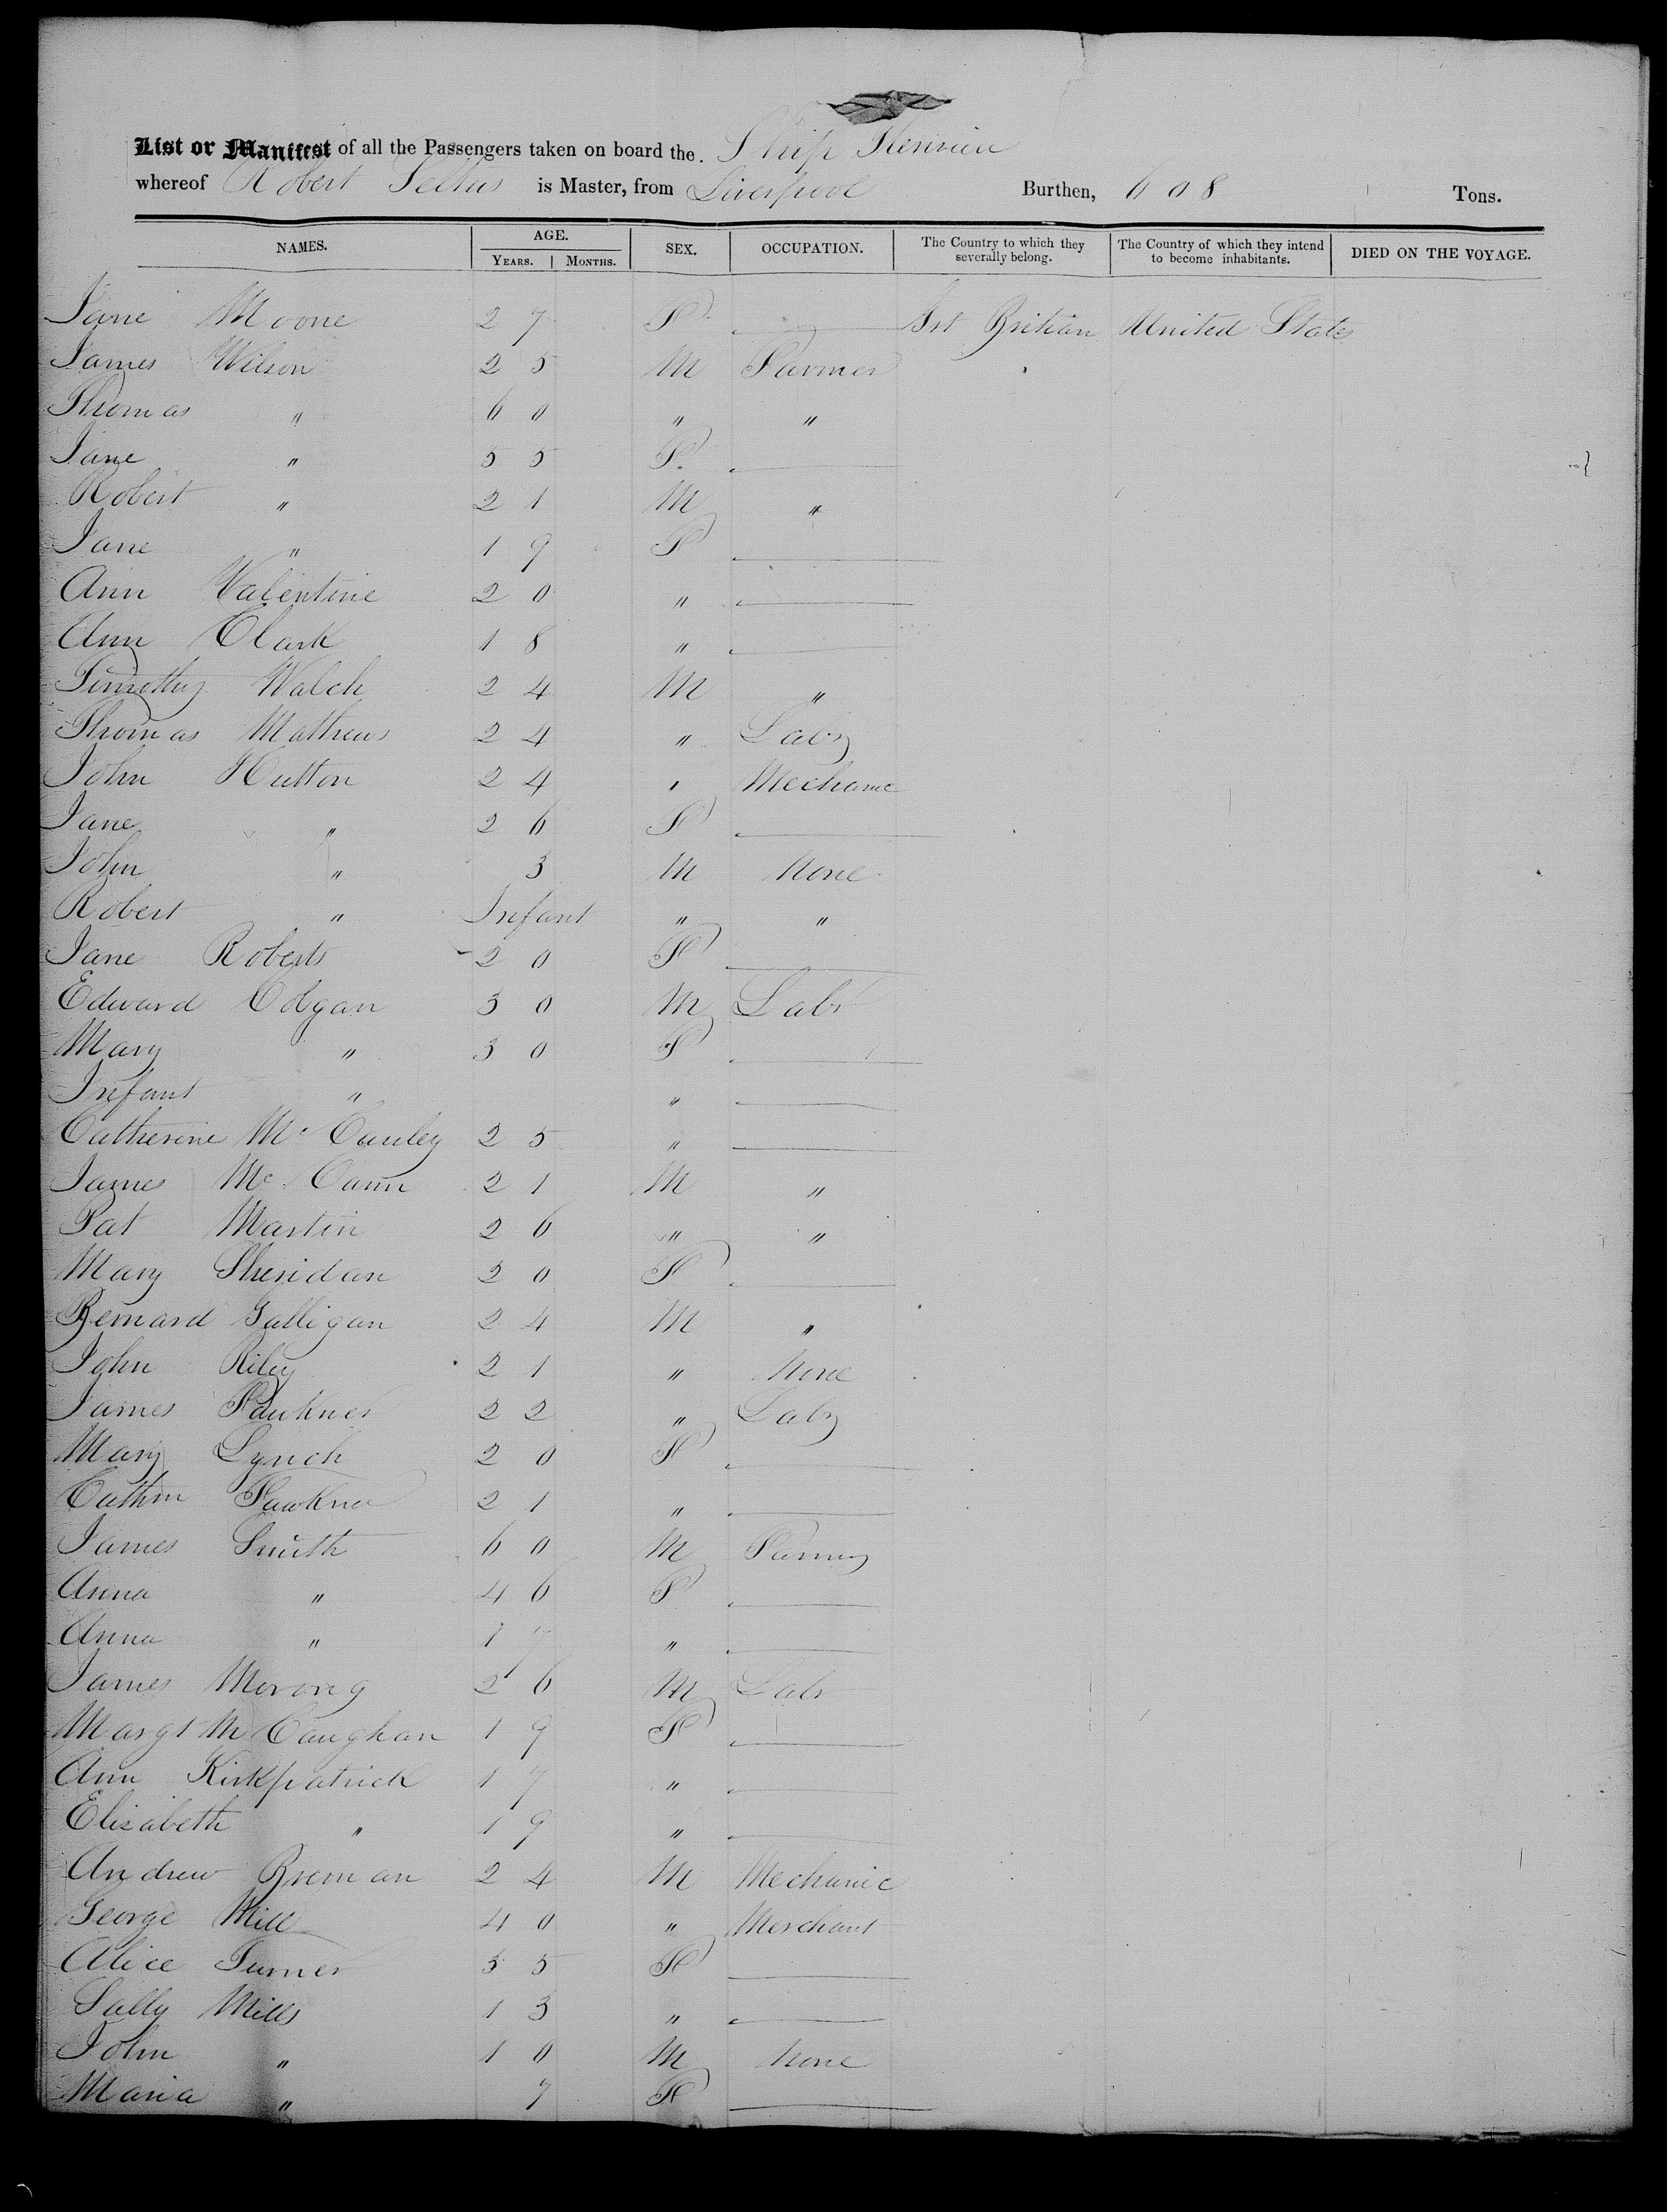 List or Manifest of all the Passengers taken on board the. Ship
whereof Robert is Master, from Liverpool Burthen, 608 Tons.
NAMES. AGE. SEX. OCCUPATION. The Country to which they severally belong. The Country of which they intend to become inhabitants. DIED ON THE VOYAGE.
YEARS. MONTHS.
Jane Moore 27 F — Grt Britian United States
James Wilson 25 M Farmer
Thomas " 60 " "
Jane " 55 F —
Robert " 21 M "
Jane " 19 F —
Ann Valentine 20 " —
Ann Clark 18 " —
Timothy Walch 24 M "
Thomas Mathews 24 " Labr
John Hutton 24 " Mechanic
Jane " 26 F —
John " 3 M None
Robert " Infant " "
Jane Roberts 20 F —
Edward Colgan 30 M Labr
Mary " 30 F —
Infant " " —
Catherine Mc Cauley 25 " —
James Mc Cann 21 M "
Pat Martin 26 " "
Mary Sheridan 20 F —
Bernard Galligan 24 M "
John Riley 21 " None
James Faukner 22 " Labr
Mary Lynch 20 F —
Cathrn Fawkner 21 " —
James Smith 60 M Farmer
Anna " 46 F —
Anna " 17 " —
James 26 M Labr
Margt Mc Caughan 19 F —
Ann Kirkpatrick 17 " —
Elisabeth " 19 " —
Andrew 24 M Mechanic
George Mill 40 " Merchant
Alice Turner 35 F —
Sally Mills 13 " —
John " 10 M None
Maria " 7 F —